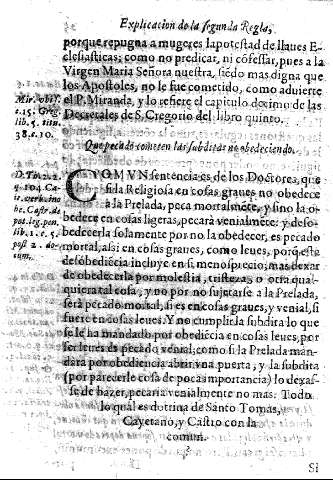 Explicacion de la segunda Regla,
porque repugna a mugeres la potestad de llaues E-
clesiasticas; como no predicar, ni cõfessar, pues a la
Virgen Maria Señora nuestra, siẽdo mas digna que
los Apostoles, no le fue cometido, como aduierte
el P. Miranda, y lo refiere el capitulo dezimo de las
Decretales de S. Gregorio del libro quinto.
Mir. ubi s.
c. 15. Greg.
lib. 5. titu.
38. c. 10.
Que pecado cometen las subditas no obedeciendo.
COMVN sentencia es de los Doctores, que
si la Religiosa en cosas graues no obedece
a la Prelada, peca mortalmẽte, y sino la o-
bedece en cosas ligeras, pecara venialmẽte: y deso-
bedecerla solamente por no la obedecer, es pecado
mortal, assi en cosas graues, como leues, porq̃ este
desobediẽcia incluye en si, menosprecio; mas dexar
de obedecerla por molestia, tristeza, o otra qual-
quiera tal cosa, y no por no sujetarse a la Prelada,
serà pecado mortal, si es en cosas graues, y venial, si
fuere en cosas leues. Y no cumplir la subdita lo que
se le ha mandado por obediẽcia en cosas leues, por
ser leues es pecado venial; como si la Prelada man-
dara por obediencia abrir vna puerta, y la subdita
(por parecerle cosa de poca importancia) lo dexas-
se de hazer, pecaria venialmente no mas. Todo
lo qual es dotrina de Santo Tomas,
Cayetano, y Castro con la
comun.
D. Th. 2. 2.
q. 104. Ca-
iet. verb. ino
be. Castr. de
pot. leg. pen.
lib. 1. c. 5.
post 2. do-
cum.
Si